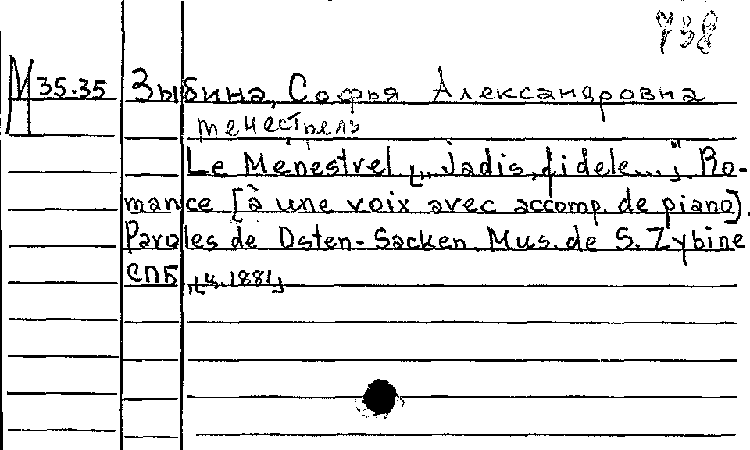 738
М 35.35 Зыбина, Софья Александровна
менестрель
Le Menestrel [„Jadis, fidele..."]. Ro-
mance [à une voix avec accomp. de piano].
Paroles de Osten-Sacken. Mus. de S. Zybine
СПБ, [ц. 1881]